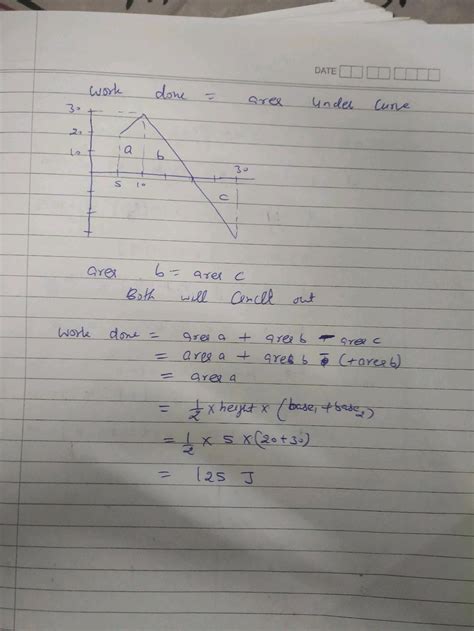 DATE
work done = area under curve
30
20
10
a
b
c
5
10
30
area b = area c
Both will Cancll out
work done = area a + area b - area c
= area a + area b - (+area b)
= area a
= 1/2 x height x (base1 + base2)
= 1/2 x 5 x (20+30)
= 125 J